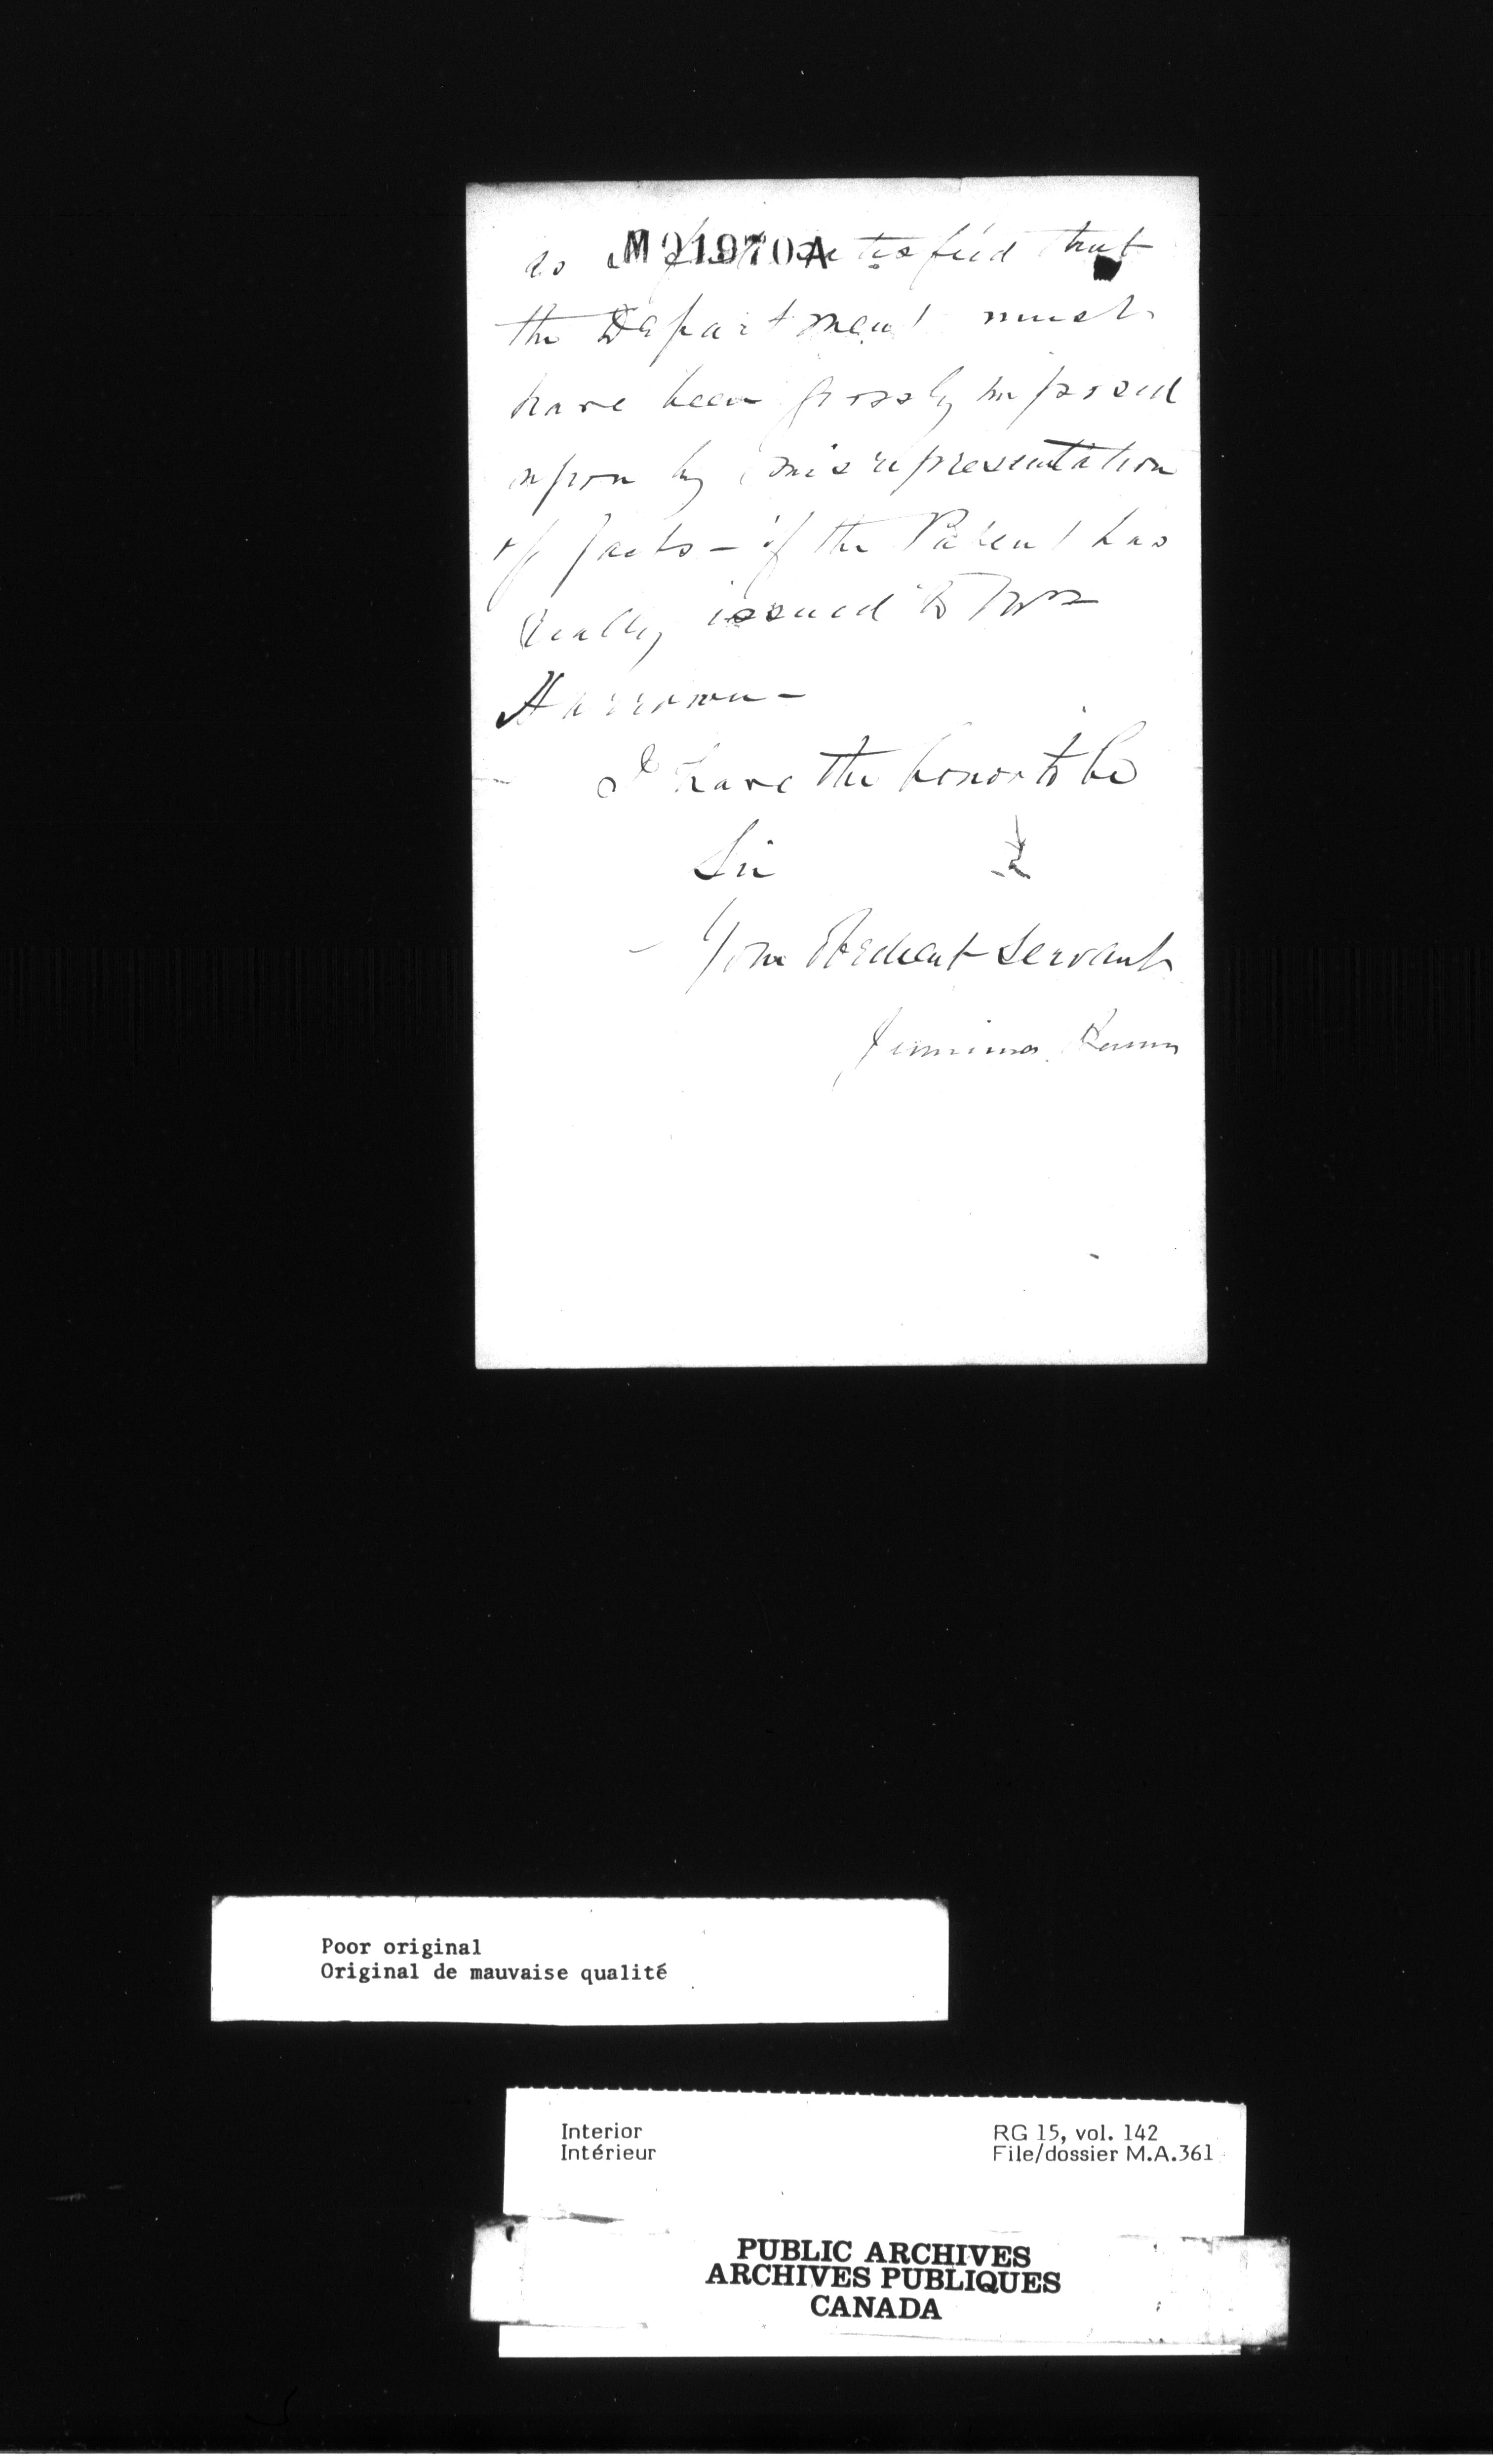 M 21970A
as I feel satisfied that
the Department must
have been grossly imposed
upon by misrepresentation
of facts - if the Patent has
really issued to Mrs
-
I have the honor to be
Sir
Your Obedient Servant
Jemima
Poor original
Original de mauvaise qualité
Interior
Intérieur
RG 15, vol. 142
File/dossier M.A.361
PUBLIC ARCHIVES
ARCHIVES PUBLIQUES
CANADA